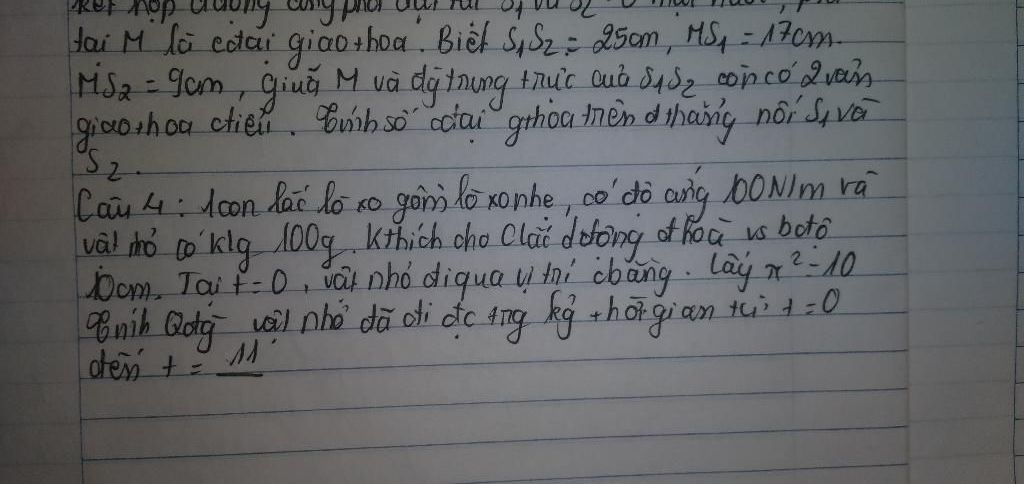 kết hợp
tại M là cđại giao thoa. Biết S₁S₂ = 25cm, MS₁ = 17cm.
MS₂ = 9cm, giữa M và đg trung trực của S₁S₂ còn có 2 vân
giao thoa ctiểu. Tính số cđại gthoa trên đ thẳng nối S₁ và
S₂.
Câu 4: 1 con lắc lò xo gồm lò xo nhẹ, có độ cứng 100N/m và
vật nhỏ có klg 100g. Kthích cho Clắc d động đhoà vs bđộ
10cm. Tại t=0, vật nhỏ đi qua vị trí cbằng. Lấy π² = 10
Tính Qđg vật nhỏ đã đi đc trg kg thời gian từ t=0
đến t = 11